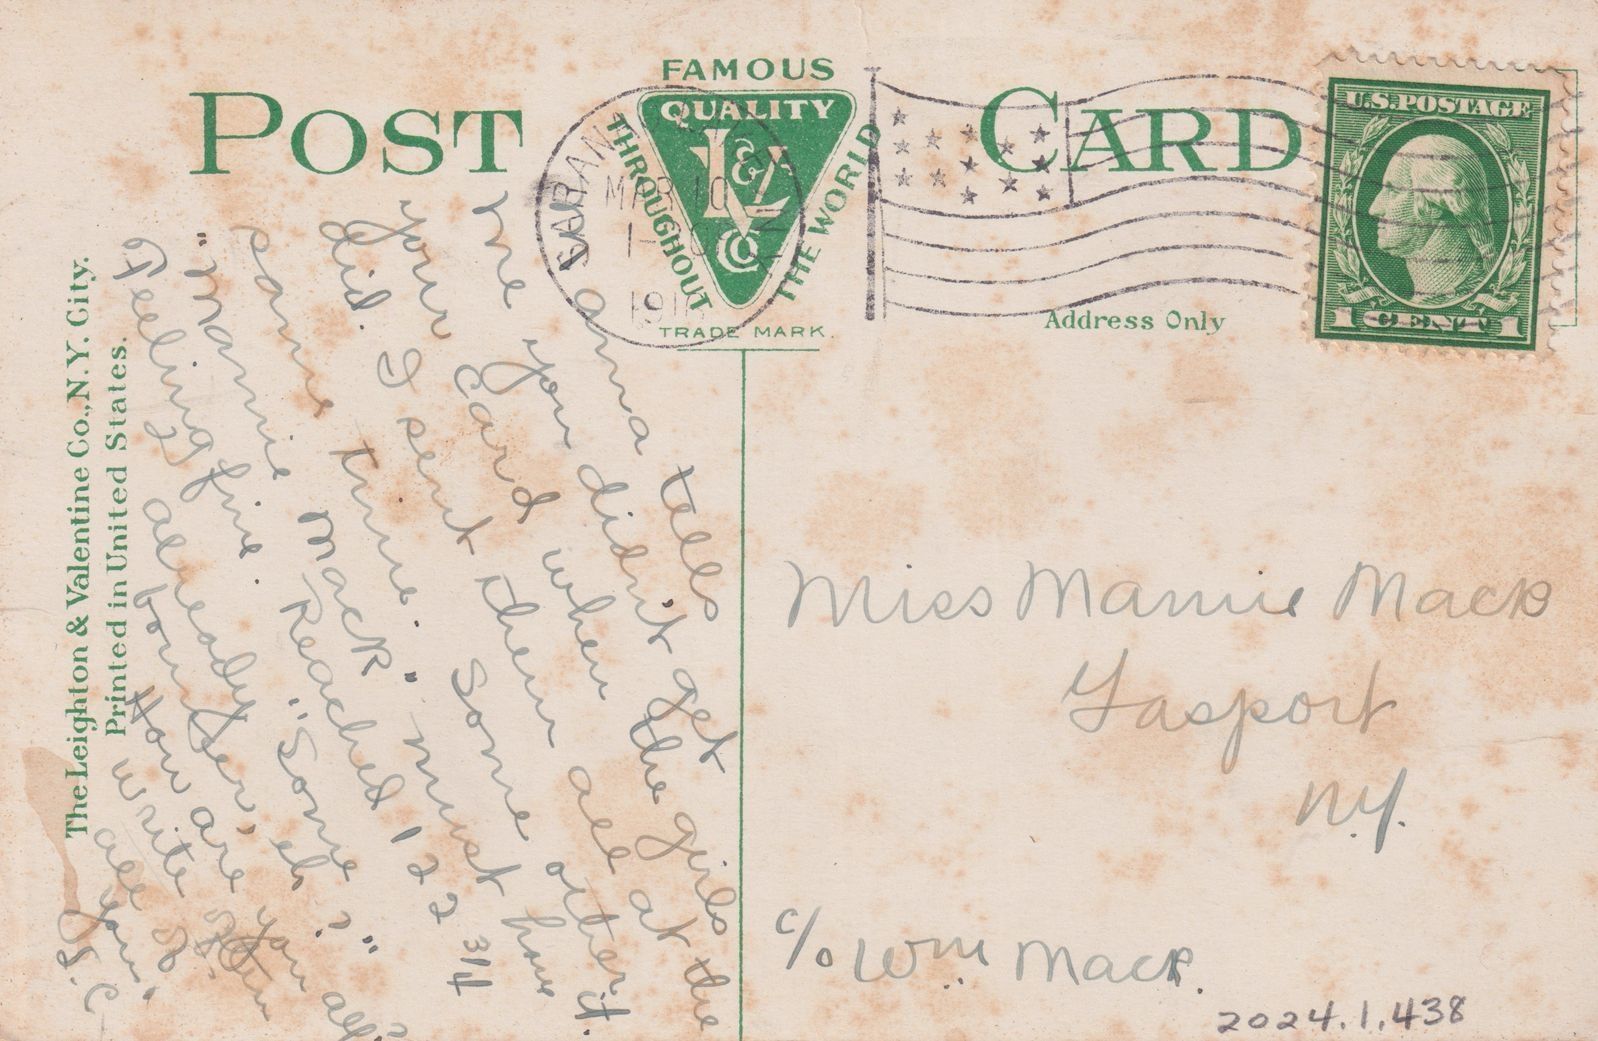 POST CARD
FAMOUS
QUALITY
L & V
Co
THROUGHOUT
THE WORLD
TRADE MARK.
SARANAC LAKE N.Y.
MAR 10
191
U.S. POSTAGE
1 CENT 1
Address Only
The Leighton & Valentine Co., N.Y. City.
Printed in United States.
Anna tells
me you didn't get the girls
your Card when all at the
did. I sent them
same time. Some other
"Mamie Mack" must have it.
Feeling fine. Reached 122 3/4
already "Some?"
bouncer, eh?
How are you all?
write
all of
you.
J. C
Miss Mamie Mack
Gasport
N.Y.
c/o Wm Mack.
2024.1.438